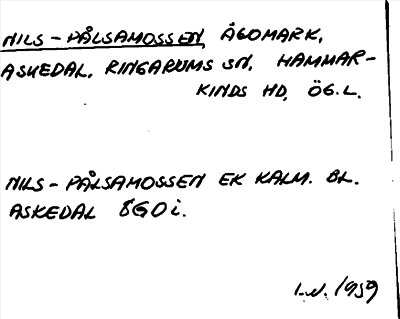 NILS-PÅLSAMOSSEN, ÄGOMARK,
ASKEDAL, RINGARUMS SN, HAMMAR-
KINDS HD, ÖG.L.
NILS-PÅLSAMOSSEN EK KALM. BL.
ASKEDAL 8GOi.
I.N. 1959